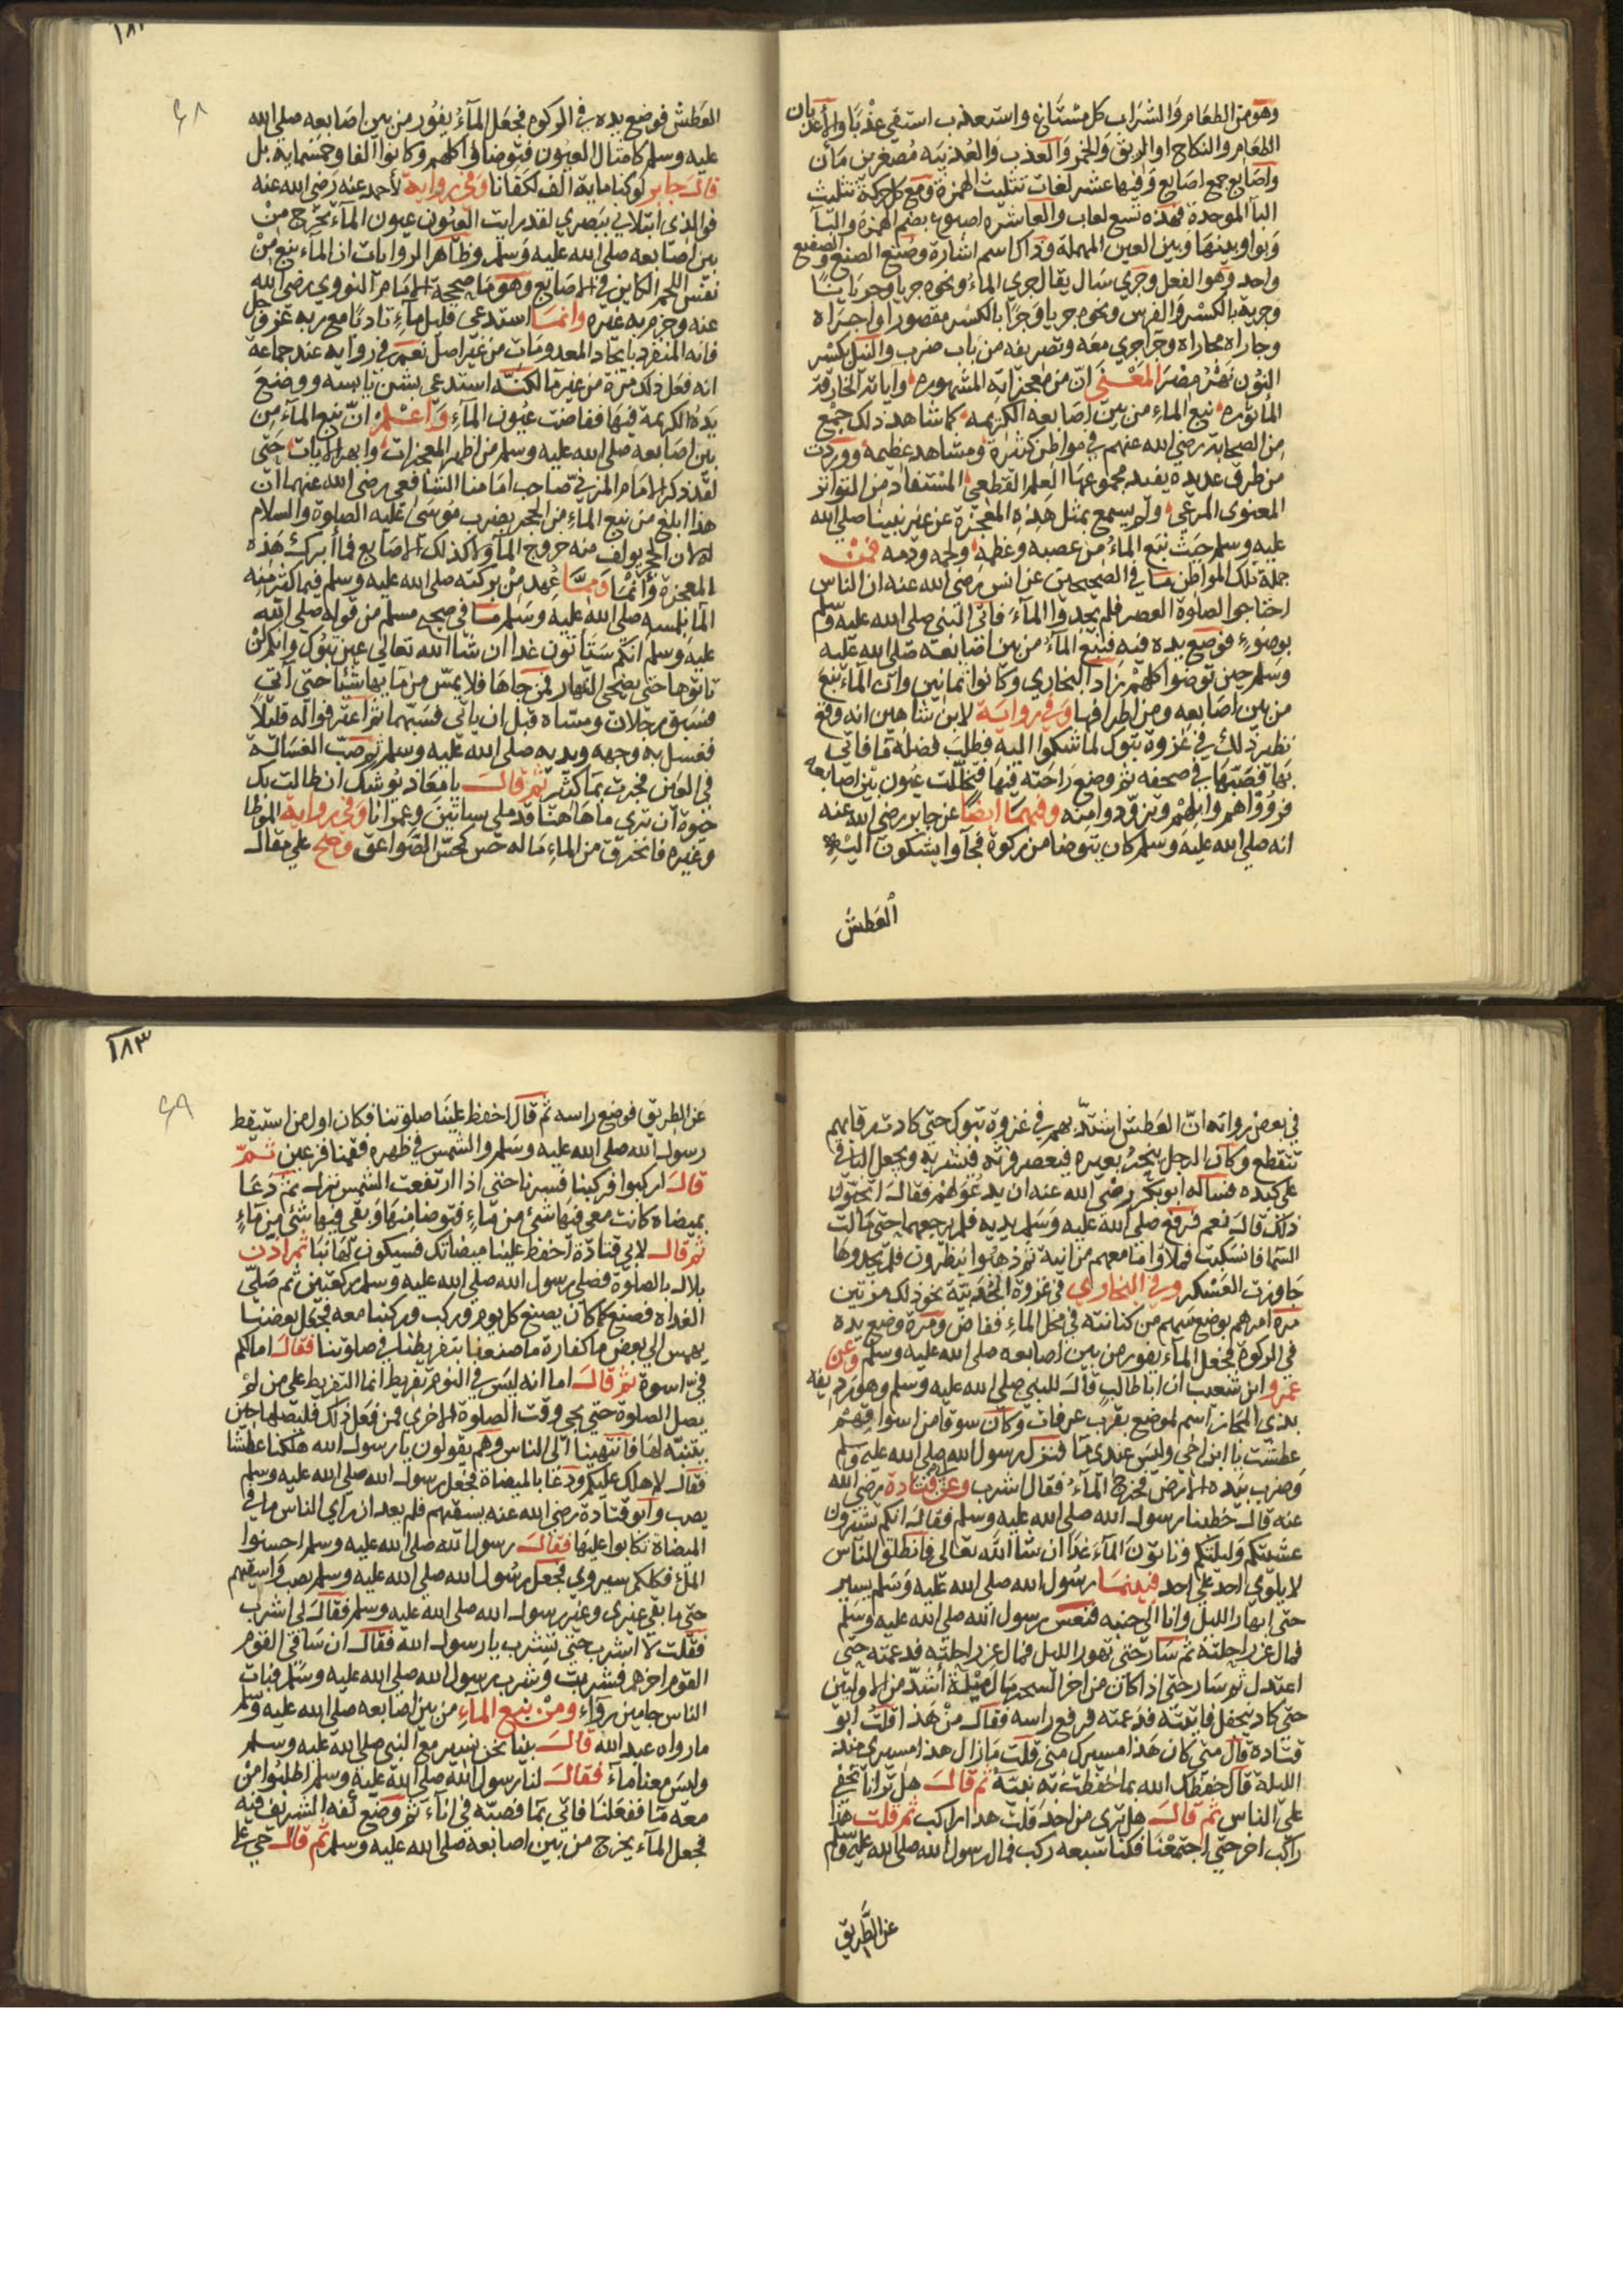 وهو من الطعام والشراب كل مستساغ واستعذب استقى عذبا والأعذبان
الطعام والنكاح او الريق والخمر والعذب والعذيبه مصغرين مآن
واصابع جمع اصابع وفيها عشر لغات تثليث الهمزة ومع كل حركة تثليث
البآ الموحدة فهذه تسع لغات والعاشره اصبوع بضم الهمزة والبآ
وبواو بينها وبين العين المهملة وذاك اسم اشارة وصنع الصنع والصنيع
واحد وهو الفعل وجري سال يقال جري الماء ونحوه جريا وجريانا
وجرية بالكسر والفرس ونحوه جريا وجرا بالكسر مقصورا واجراه
وجاراه مجاراه وجرآ جري معه وتصريفه من باب ضرب والنيل بكسر
النون نهر مصر المعنى ان من معجزاته المشهوره وآياته الخارقة
المأثوره نبع الماء من بين اصابعه الكريمه كما شاهد ذلك جمع
من الصحابة رضي الله عنهم في مواطن كثيرة ومشاهد عظيمه ووردت
من طرق عديده يفيد مجموعها العلم القطعي المستفاد من التواتر
المعنوى المرعي ولم يسمع بمثل هذه المعجزة عن غير نبينا صلى الله
عليه وسلم حيث نبع الماء من عصبه وعظمه ولحمه ودمه فمن
جملة تلك المواطن ما في الصحيحين عن انس رضي الله عنه ان الناس
احتاجوا الصلوة العصر فلم يجدوا المآء فاتى النبي صلى الله عليه وسلم
بوضوء فوضع يده فيه فنبع المآء من بين اصابعه صلى الله عليه
وسلم حين توضوا كلهم زاد البخاري وكانوا ثمانين وان المآء نبع
من بين اصابعه ومن اطرافها وفي رواية لابن شاهين انه وقع
نظير ذلك في غزوة تبوك لما شكوا اليه فطلب فضلة ماء فاتى
بها فصبها في صحفه ثم وضع راحته فيها فتخللت عيون بين اصابعه
فرووا هم وابلهم وتزودوا منه وفيهما ايضا عن جابر رضي الله عنه
انه صلى الله عليه وسلم كان يتوضا من ركوة فجآوا يشكون اليه
العطش
١٨٢
٤٨
العطش فوضع يده في الركوه فجعل المآء يفور من بين اصابعه صلى الله
عليه وسلم كامثال العيون فتوضا في اكلهم وكانوا الفا وخمسمايه بل
قال جابر لو كنا ماية الف لكفانا وفي رواية لأحمد عنه رضي الله عنه
فوالذى ابتلاني ببصري لقد رايت العيون عيون المآء تخرج من
بين اصابعه صلى الله عليه وسلم وظاهر الروايات ان المآء ينبع من
نفس اللحم الكاين في الاصابع وهو ما صححه الامام النووي رضي الله
عنه وجزم به غيره وانما استدعى قليل مآء تادبا مع ربه عز وجل
فانه المنفرد بايجاد المعدومات من غير اصل نعم في رواية عند جماعة
انه فعل ذلك مرة من غير مآ لكنه استدعى بشن يابسه ووضع
يده الكريمة فيها ففاضت عيون المآء واعلم ان نبع المآء من
بين اصابعه صلى الله عليه وسلم من اظهر المعجزات وابهر الآيات حتى
لقد ذكر الامام المزني صاحب امامنا الشافعي رضي الله عنهما ان
هذا ابلغ من نبع الماء من الحجر بضرب موسى عليه الصلوة والسلام
له لان الحجر يولف منه خروج المآ ولا كذلك الاصابع فما أبرك هذه
المعجزة وأنماها ومما عهد من بركته صلى الله عليه وسلم فيما اكثر منه
المآ بلمسه صلى الله عليه وسلم ما في صحيح مسلم من قوله صلى الله
عليه وسلم انكم ستاتون غدا ان شا الله تعالى عين تبوك وانكم لن
تاتوها حتى يضحى النهار فمن جاها فلا يمس من مايها شيئا حتى آتي
فسبق رجلان ومساه قبل ان ياتي فسبهما ثم اغترفوا له قليلا
فغسل به وجهه ويديه صلى الله عليه وسلم ثم صب الغسالة
في العين فجرت بمآ كثير ثم قال يا معاذ يوشك ان طالت بك
حيوة ان ترى ماهاهنا قد ملي بساتين وعمرانا وفي رواية الموطا
وغيره فانخرق من الماء ماله حس كحس الصواعق وصح على مقال
في بعض رواته ان العطش اشتد بهم في غزوة تبوك حتى كادت رقابهم
تنقطع وكان الرجل ينحر بعيره فيعصر فرثه فيشربه ويجعل الباقي
على كبده فساله ابو بكر رضي الله عنه ان يدعو لهم فقال اتحبون
ذلك قال نعم فرفع صلى الله عليه وسلم يديه فلم يرجعهما حتى مالت
السما فانسكبت فملاوا ما معهم من انية ثم ذهبوا ينظرون فلم يجدوها
جاوزت العسكر وفي البخاري في غزوة الحديبية نحو ذلك مرتين
مره امرهم بوضع سهم من كنانته في محل الماء ففاض ومرة وضع يده
في الركوة فجعل المآء يفور من بين اصابعه صلى الله عليه وسلم وعن
عمرو ابن شعيب ان ابا طالب قال للنبي صلى الله عليه وسلم وهو رديفه
بذي المجاز اسم لموضع بقرب عرفات وكان سوقا من اسواقهم
عطشت يا ابن اخي وليس عندي مآ فنزل رسول الله صلى الله عليه وسلم
وضرب بيده الارض فخرج المآء فقال اشرب وعن قتادة رضي الله
عنه قال خطبنا رسول الله صلى الله عليه وسلم فقال انكم تسيرون
عشيتكم وليلتكم وتاتون المآء غدا ان شا الله تعالى فانطلق الناس
لا يلوي احد على احد فبينما رسول الله صلى الله عليه وسلم يسير
حتى ابهار الليل وانا الى جنبه فنعس رسول الله صلى الله عليه وسلم
فمال عن راحلته ثم سار حتى تهور الليل فمال عن راحلته فدعمته حتى
اعتدل ثم سار حتى اذا كان من اخر السحر مال ميلة اشد من الاوليين
حتى كاد ينجفل فاتيته فدعمته فرفع راسه فقال من هذا قلت ابو
قتادة قال متى كان هذا مسيرك منى قلت مازال هذا مسيري منذ
الليلة قال حفظك الله بما حفظت به نبيه ثم قال هل ترانا نخفى
على الناس ثم قال هل ترى من احد قلت هذا راكب ثم قلت هذا
راكب اخر حتى اجتمعنا فكنا سبعه ركب فمال رسول الله صلى الله عليه وسلم
عن الطريق
١٨٣
٤٩
عن الطريق فوضع راسه ثم قال احفظ علينا صلوتنا فكان اول من استيقظ
رسول الله صلى الله عليه وسلم والشمس في ظهره فقمنا فزعين ثم
قال اركبوا فركبنا فسرنا حتى اذا ارتفعت الشمس نزل ثم دعا
بميضاه كانت معي فيها شئ من مآء فتوضا منها وبقي فيها شئ من مآء
ثم قال لابي قتادة احفظ علينا ميضاتك فسيكون لها نبا ثم اذن
بلال بالصلوة فصلى رسول الله صلى الله عليه وسلم ركعتين ثم صلى
الغداه فصنع كما كان يصنع كل يوم وركب وركبنا معه فجعل بعضنا
يهمس الى بعض ما كفارة ما صنعنا بتفريطنا في صلوتنا فقال امالكم
في اسوة ثم قال اما انه ليس في النوم تفريط انما التفريط على من لم
يصل الصلوة حتى يجي وقت الصلوة الاخرى فمن فعل ذلك فليصلها حين
ينتبه لها فانتهينا الى الناس وهم يقولون يا رسول الله هلكنا عطشا
فقال لا هلك عليكم ودعا بالميضاة فجعل رسول الله صلى الله عليه وسلم
يصب وابو قتادة رضي الله عنه يسقيهم فلم يعد ان راى الناس ما في
الميضاة تكابوا عليها فقال رسول الله صلى الله عليه وسلم احسنوا
الملأ فكلكم سيروي فجعل رسول الله صلى الله عليه وسلم يصب واسقيهم
حتى ما بقي غيرى وغير رسول الله صلى الله عليه وسلم فقال لي اشرب
فقلت لا اشرب حتى تشرب يا رسول الله فقال ان ساقي القوم
القوم اخرهم فشربت وشرب رسول الله صلى الله عليه وسلم فبات
الناس جامين رواء ومن نبع المآء من بين اصابعه صلى الله عليه وسلم
مارواه عبد الله قال بينا نحن نسير مع النبي صلى الله عليه وسلم
وليس معنا مآء فقال لنا رسول الله صلى الله عليه وسلم اطلبوا من
معه مآ ففعلنا فاتي بمآ فصبه في انآء ثم وضع كفه الشريف فيه
فجعل المآء يخرج من بين اصابعه صلى الله عليه وسلم ثم قال حي على